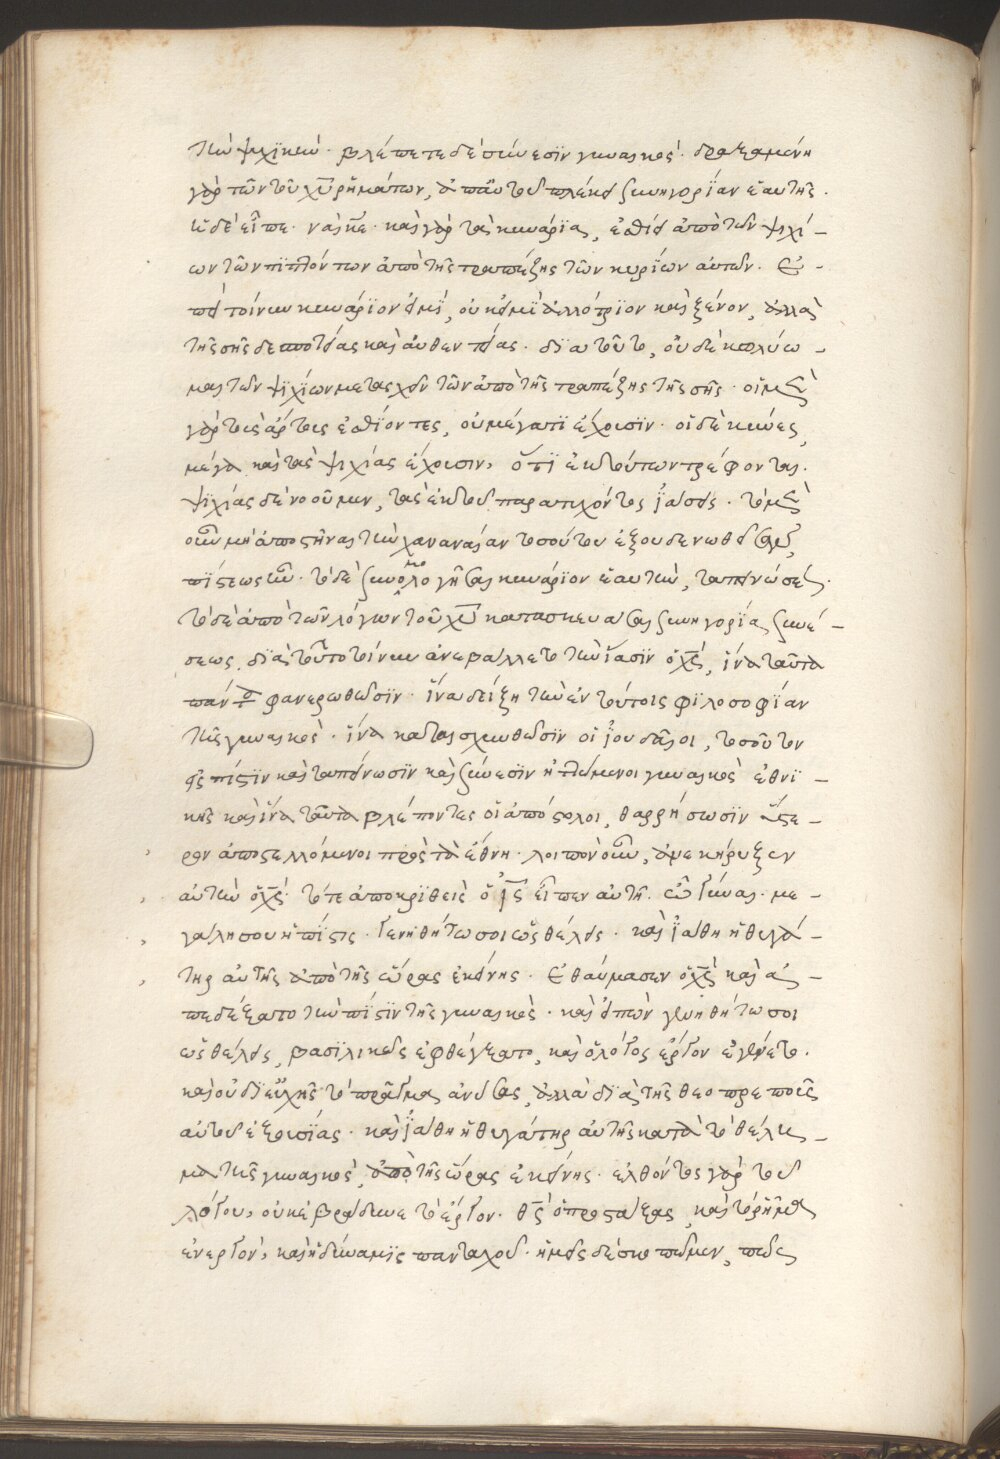 τὴν ψυχϊκὴν· βλέπετε δὲ σύνεσϊν γυναικὸς· δραξαμένη
γὰρ τῶν τοῦ χῡ ῥημάτων, ἀπ' αὐτοῦ πλέκει συνηγορΐαν ἑαυτῆς·
ἡ δὲ εἶπε· ναὶ κε̄· καὶ γὰρ τὰ κυνάρϊα, ἐσθίει ἀπὸ τῶν ψιχί-
ων τῶν πϊπτόντων ἀπὸ τῆς τραπέζης τῶν κυρίων αὐτῶν· Ἐ-
πεὶ τοίνυν κυνάρϊον εἰμϊ, οὐκ εἰμϊ ἀλλότρϊον καὶ ξένον, ἀλλὰ
τῆς σῆς δεσποτείας καὶ αὐθεντείας· δϊα τοῦτο, οὐδὲ κωλύο-
μαι τῶν ψϊχίων μετασχεῖν τῶν ἀπὸ τῆς τραπέζης τῆς σῆς· οἱ μὲν
γὰρ τοὺς ἄρτους ἐσθΐοντες, οὐ μέγα τϊ ἔχουσϊν· οἱ δὲ κύνες,
μέγα καὶ τὰς ψιχίας ἔχουσιν, ὅτϊ ἐκ τούτων τρέφονται·
ψϊχίας δὲ νοοῦμεν, τὰς ἐκ τοῦ παρατυχόντος ϊάσεις· τὸ μὲν
οὖν μὴ ἀποστῆναι τὴν χαναναίαν τοσούτου ἐξουδενωθεῖσαν,
πϊστεως ἦν· τὸ δὲ συνομολογῆσαι κυνάριον ἑαυτὴν, ταπεινώσεως·
τὸ δὲ ἀπὸ τῶν λόγων τοῦ χῡ κατασκευάσαι συνηγορΐας, συνέ-
σεως. δϊὰ τοῦτο τοίνυν ἀνεβάλλετο τὴν ἴασϊν ὁ χς̄, ἵνα ταῦτα
πάντα φανερωθῶσϊν· ἵνα δείξῃ τὴν ἐν τούτοις φϊλοσοφΐαν
τῆς γυναικὸς· ἵνα καταισχυνθῶσϊν οἱ ϊουδαῖοι, τοσοῦτον
εἰς πίστϊν καὶ ταπείνωσϊν καὶ σύνεσϊν ἡττώμενοι γυναικὸς ἐθνϊ-
κῆς καὶ ἵνα ταῦτα βλέποντες οἱ ἀπόστολοι, θαρρήσωσϊν ὕστε-
ρον ἀποστελλόμενοι πρὸς τὰ ἔθνη· λοιπὸν οὖν, ἀνεκήρυξεν
αὐτὴν ὁ χς̄· τότε ἀποκρϊθεὶς ὁ ις̄ εἶπεν αὐτῇ· ὦ γύναι· με-
γάλη σου ἡ πίστις· Γενηθήτω σοι ὡς θέλεις· καὶ ϊάθη ἡ θυγά-
τηρ αὐτῆς ἀπὸ τῆς ὥρας ἐκείνης· Ἐθαύμασεν ὁ χς̄ καὶ ἀ-
πεδέξατο τὴν πϊστϊν τῆς γυναικὸς· καὶ εἰπὼν γενηθήτω σοι
ὡς θέλεις, βασϊλικῶς ἐφθέγξατο, καὶ ὁ λόγος ἔργον ἐγένετο·
καὶ οὐ δϊ εὐχῆς τὸ πρᾶγμα ἀνύσας, ἀλλὰ δϊὰ τῆς θεοπρεποῦς
αὐτοῦ ἐξουσΐας· καὶ ϊάθη ἡ θυγάτηρ αὐτῆς κατὰ τὸ θέλη-
μα τῆς γυναικὸς, ἀπὸ τῆς ὥρας ἐκείνης· ἐλθόντος γὰρ τοῦ
λόγου, οὐκ ἐβράδυνε τὸ ἔργον· θς̄ ὁ προστάξας, καὶ τὸ ῥῆμα
ἐνεργὸν, καὶ ἡ δύναμϊς πανταχοῦ· ἡμεῖς δὲ σιωπῶμεν, πῶς